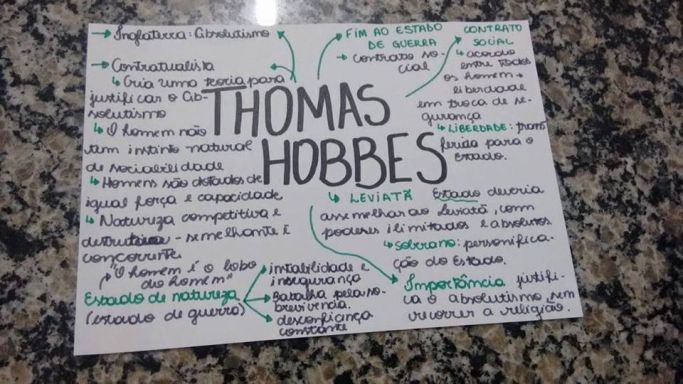 → Inglaterra: Absolutismo
→ Contratualista
↳ Cria uma teoria para
justificar o Ab-
solutismo
↳ O homem não
tem instinto natural
de sociabilidade
↳ Homens são dotados de
igual força e capacidade
↳ Natureza competitiva e
destrutiva - semelhante é
concorrente
↳ "O homem é o lobo
do homem"
Estado de natureza
(estado de guerra)
→ instabilidade e
insegurança
→ Batalha pela so-
brevivência
→ desconfiança
constante
THOMAS
HOBBES
FIM AO ESTADO
DE GUERRA
→ contrato so-
cial
CONTRATO
SOCIAL
↳ acordo
entre todos
os homem →
liberdade
em troca de se-
gurança
↳ LIBERDADE: trans
ferida para o
Estado.
↳ LEVIATÃ Estado deveria
assemelhar ao Leviatã, com
poderes ilimitados e absolutos
↳ Soberano: personifica-
ção do Estado.
Importância justifi-
ca o absolutismo sem
recorrer a religião.